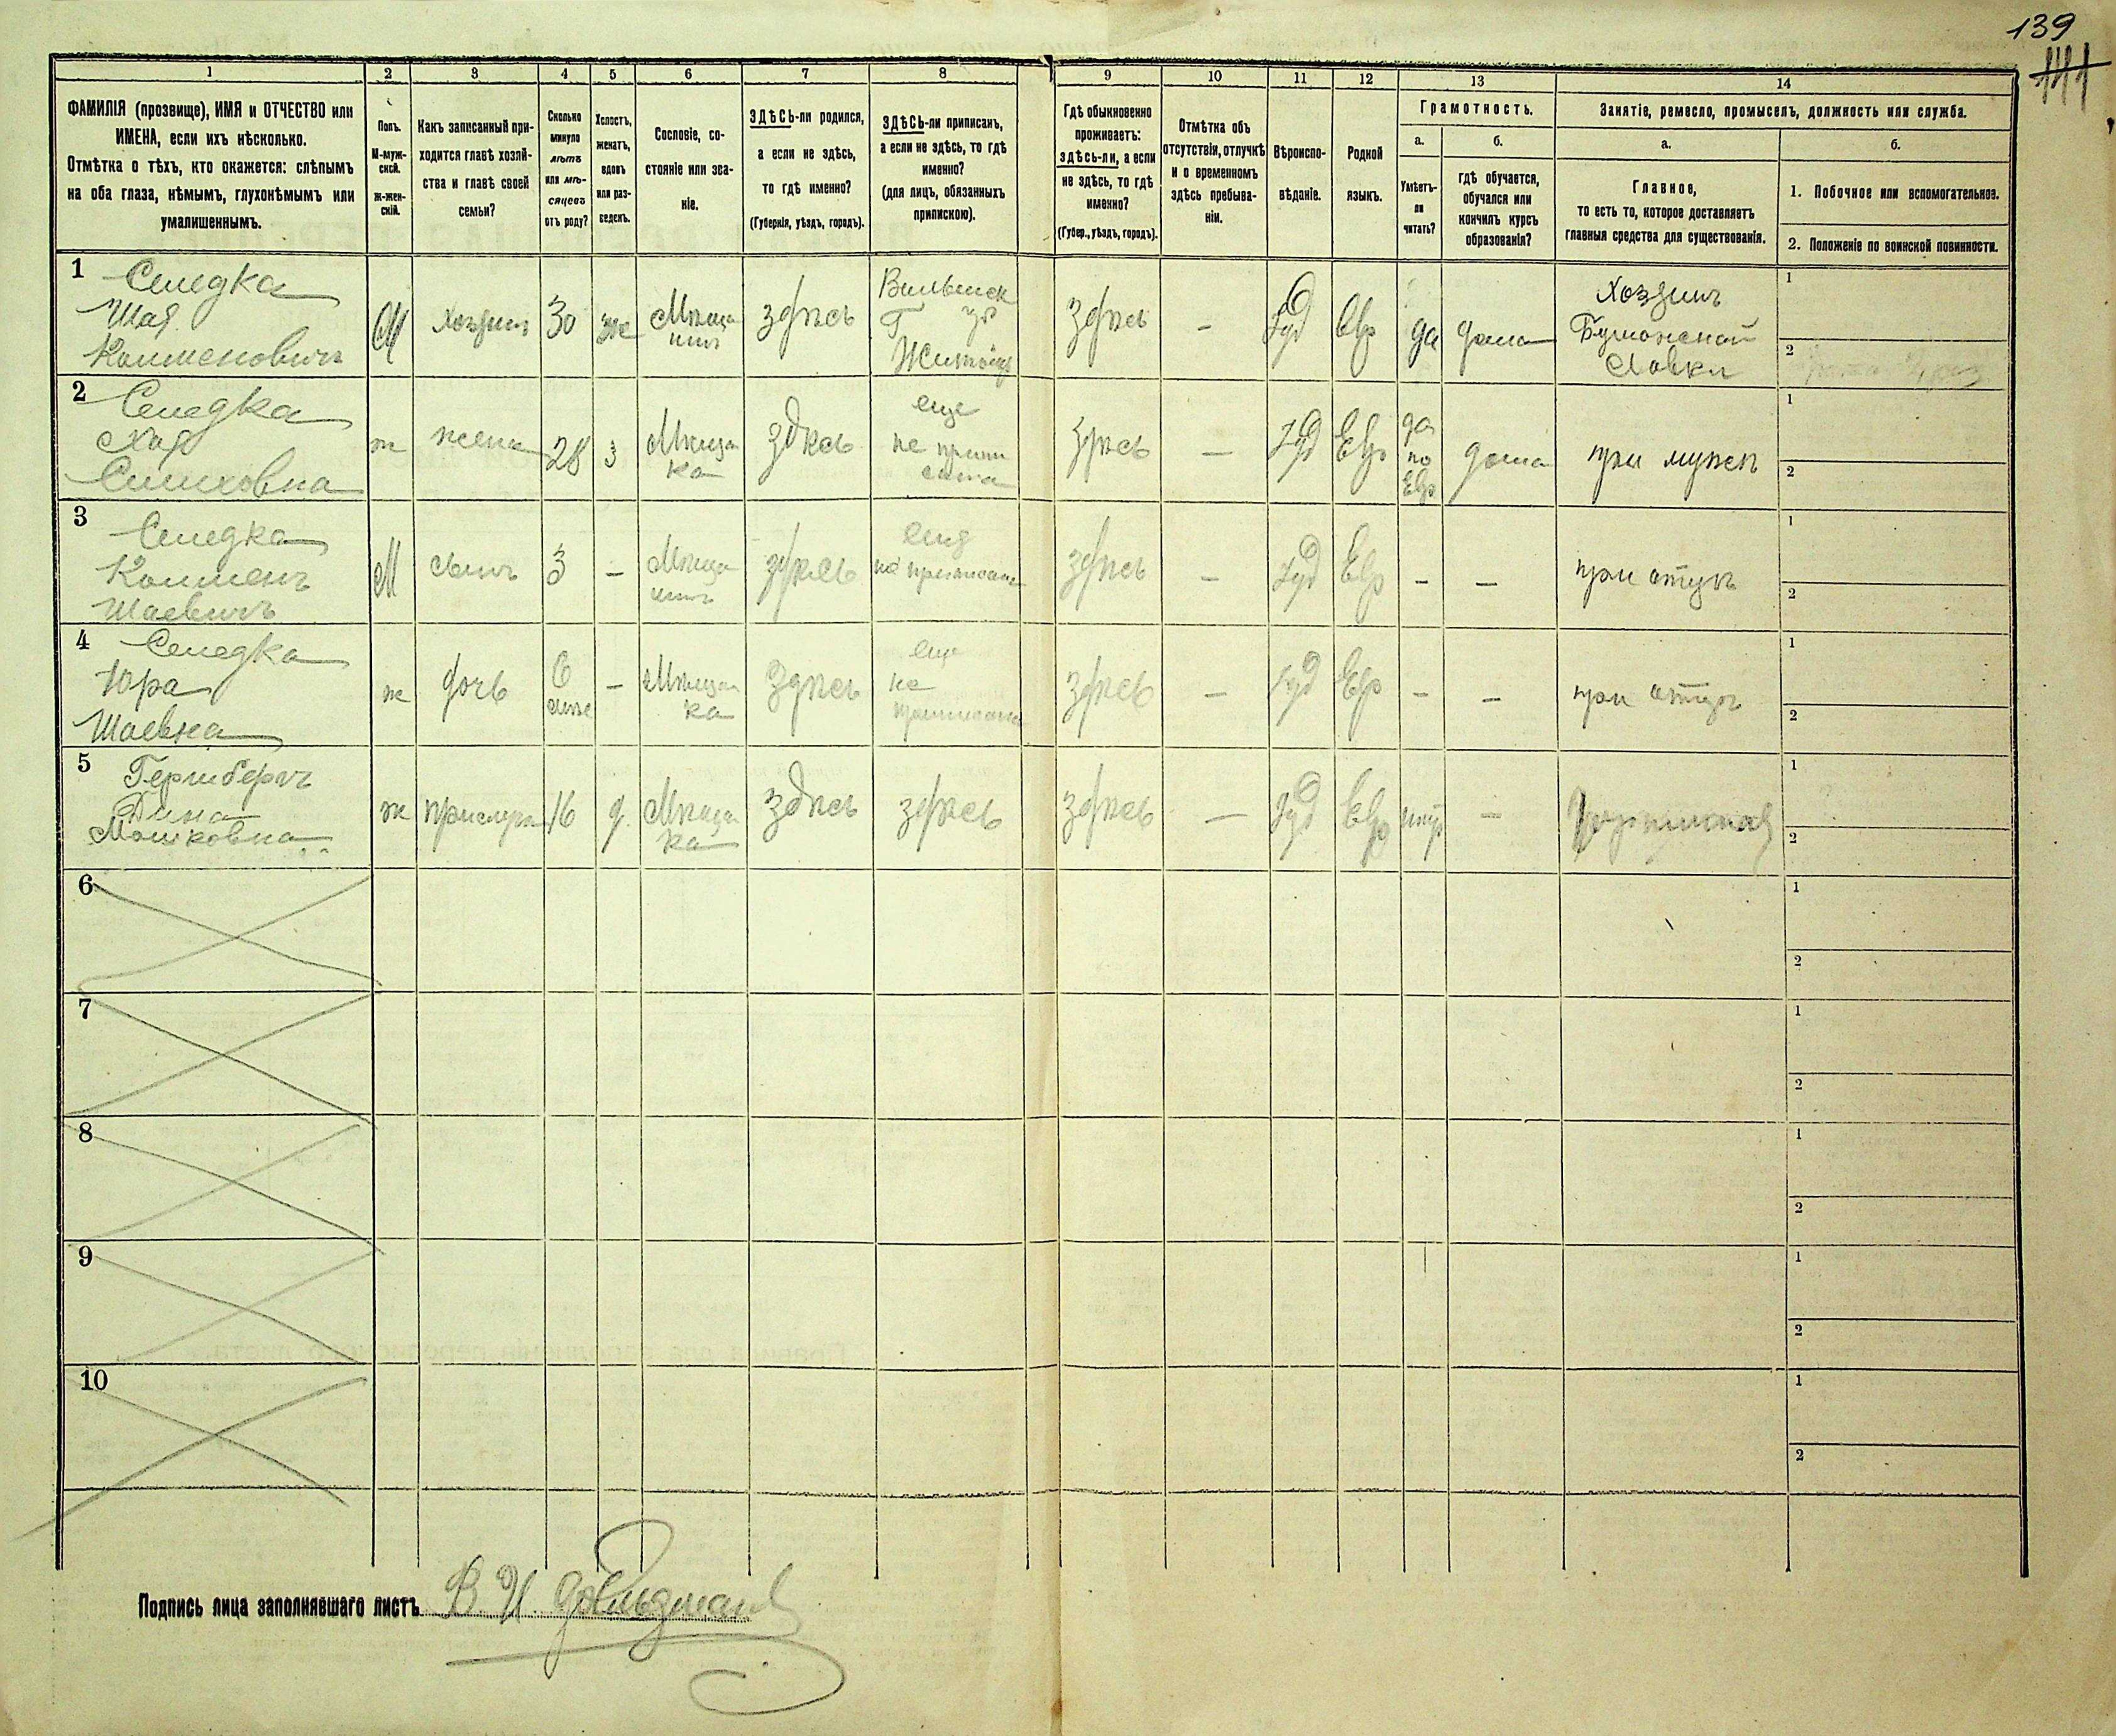 139
141
1 2 3 4 5 6 7 8 9 10 11 12 13 14
ФАМИЛІЯ (прозвище), ИМЯ и ОТЧЕСТВО или
ИМЕНА, если ихъ нѣсколько.
Отмѣтка о тѣхъ, кто окажется: слѣпымъ
на оба глаза, нѣмымъ, глухонѣмымъ или
умалишеннымъ.
Полъ.
М-муж-
ской.
Ж-жен-
скій.
Какъ записанный при-
ходится главѣ хозяй-
ства и главѣ своей
семьи?
Сколько
минуло
лѣтъ
или мѣ-
сяцевъ
отъ роду?
Холостъ,
женатъ,
вдовъ
или раз-
веденъ.
Сословіе, со-
стояніе или зва-
ніе.
ЗДѢСЬ-ли родился,
а если не здѣсь,
то гдѣ именно?
(Губернія, уѣздъ, городъ).
ЗДѢСЬ-ли приписанъ,
а если не здѣсь, то гдѣ
именно?
(для лицъ, обязанныхъ
припискою).
Гдѣ обыкновенно
проживаетъ:
здѣсь-ли, а если
не здѣсь, то гдѣ
именно?
(Губер., уѣздъ, городъ).
Отмѣтка объ
отсутствіи, отлучкѣ
и о временномъ
здѣсь пребыва-
ніи.
Вѣроиспо-
вѣданіе.
Родной
языкъ.
Грамотность.
а.
Умѣетъ-
ли
читать?
б.
гдѣ обучается,
обучался или
кончилъ курсъ
образованія?
Занятіе, ремесло, промыселъ, должность или служба.
а.
Главное,
то есть то, которое доставляетъ
главныя средства для существованія.
б.
1. Побочное или вспомогательное.
2. Положеніе по воинской повинности.
1 Селедка
Шая
Колменовичъ
М
хозяинъ
30
же
Мѣща
нинъ
здѣсь
Г
Житомір
здѣсь
-
Іуд
Евр
да
дома
Хозяинъ
Бумажной
Лавки
1
2
2 Селедка
Хая
ж
жена
28
з
Мѣщан
ка
здѣсь
еще
не припи
сана
здѣсь
-
Іуд
Евр
да
по
Евр
дома
при мужѣ
1
2
3 Селедка
Колменъ
Шаевичъ
М
сынъ
3
-
Мѣща
нинъ
здѣсь
еще
не приписанъ
здѣсь
-
Іуд
Евр
-
-
при отцѣ
1
2
4 Селедка
Юра
Шаевна
ж
дочь
6
-
Мѣщан
ка
здѣсь
еще
не
приписана
здѣсь
-
Іуд
Евр
-
-
при отцѣ
1
2
5 Гершбергъ
Дина
Мошковна
ж
прислуга
16
д
Мѣщан
ка
здѣсь
здѣсь
здѣсь
-
Іуд
Евр
нѣтъ
-
1
2
6
1
2
7
1
2
8
1
2
9
1
2
10
1
2
Подпись лица заполнявшаго листъ В. И.